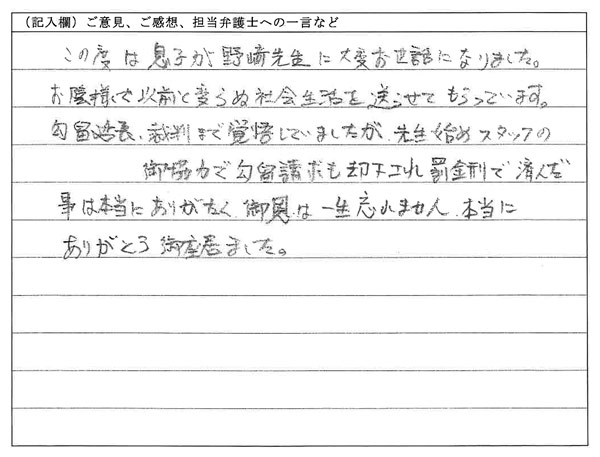 （記入欄）ご意見、ご感想、担当弁護士への一言など
この度は息子が野崎先生に大変お世話になりました。
お陰様で以前と変らぬ社会生活を送らせてもらっています。
勾留延長、裁判まで覚悟していましたが、先生始めスタッフの
御協力で勾留請求も却下され罰金刑で済んだ
事は本当にありがたく、御恩は一生忘れません。本当に
ありがとう御座居ました。